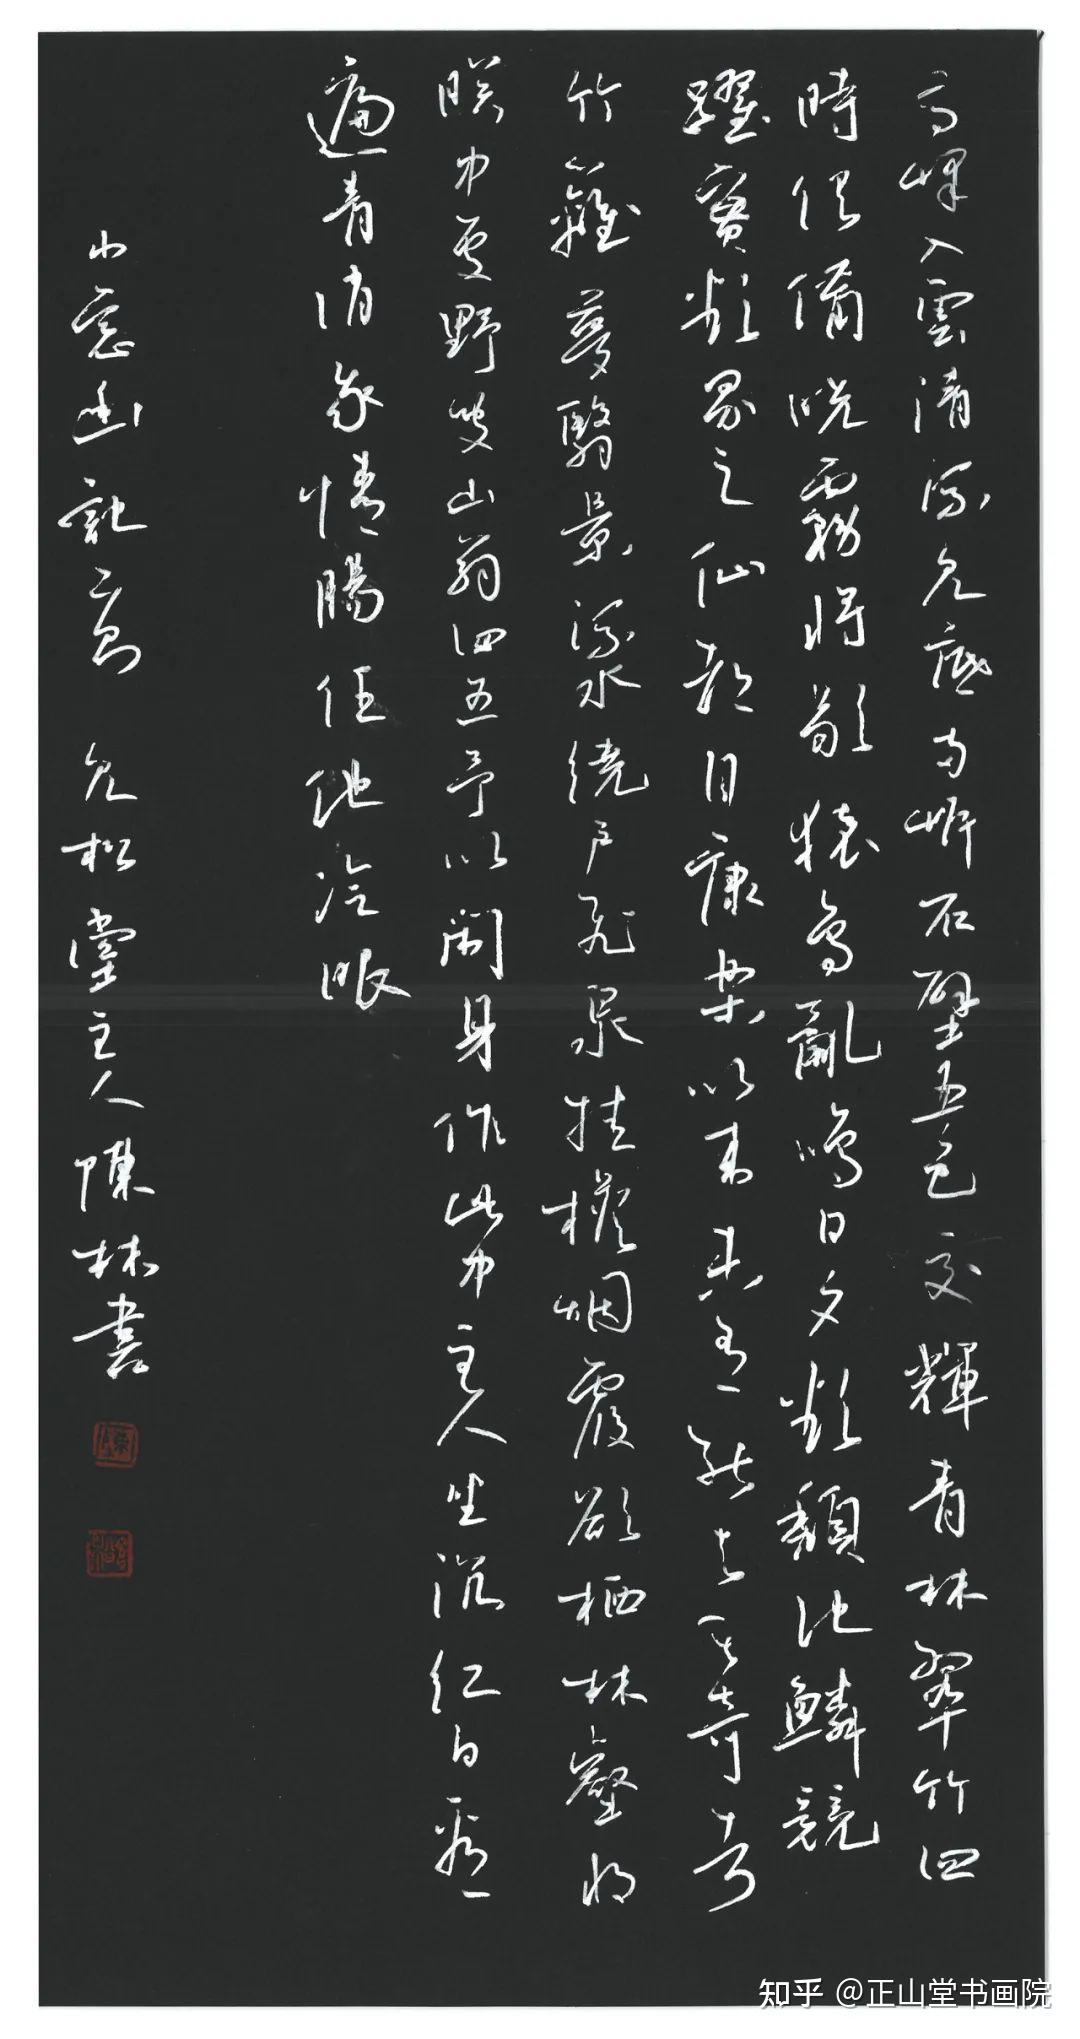 高峰入雲清流見底兩岸石壁五色交輝青林翠竹四
時俱備曉霧將歇猿鳥亂鳴日夕欲頹沈鱗競
躍實欲界之仙都自康樂以來未有能與其奇者
竹籬蔓翳景流水繞戶飛泉挂檐烟霞欲栖林壑將
瞑中處野叟山翁四五予以閑身作此中主人坐沉红白看
遍青消我情腸任他冷眼
小窗幽記二則 見松堂主人陳林書
知乎 @正山堂书画院